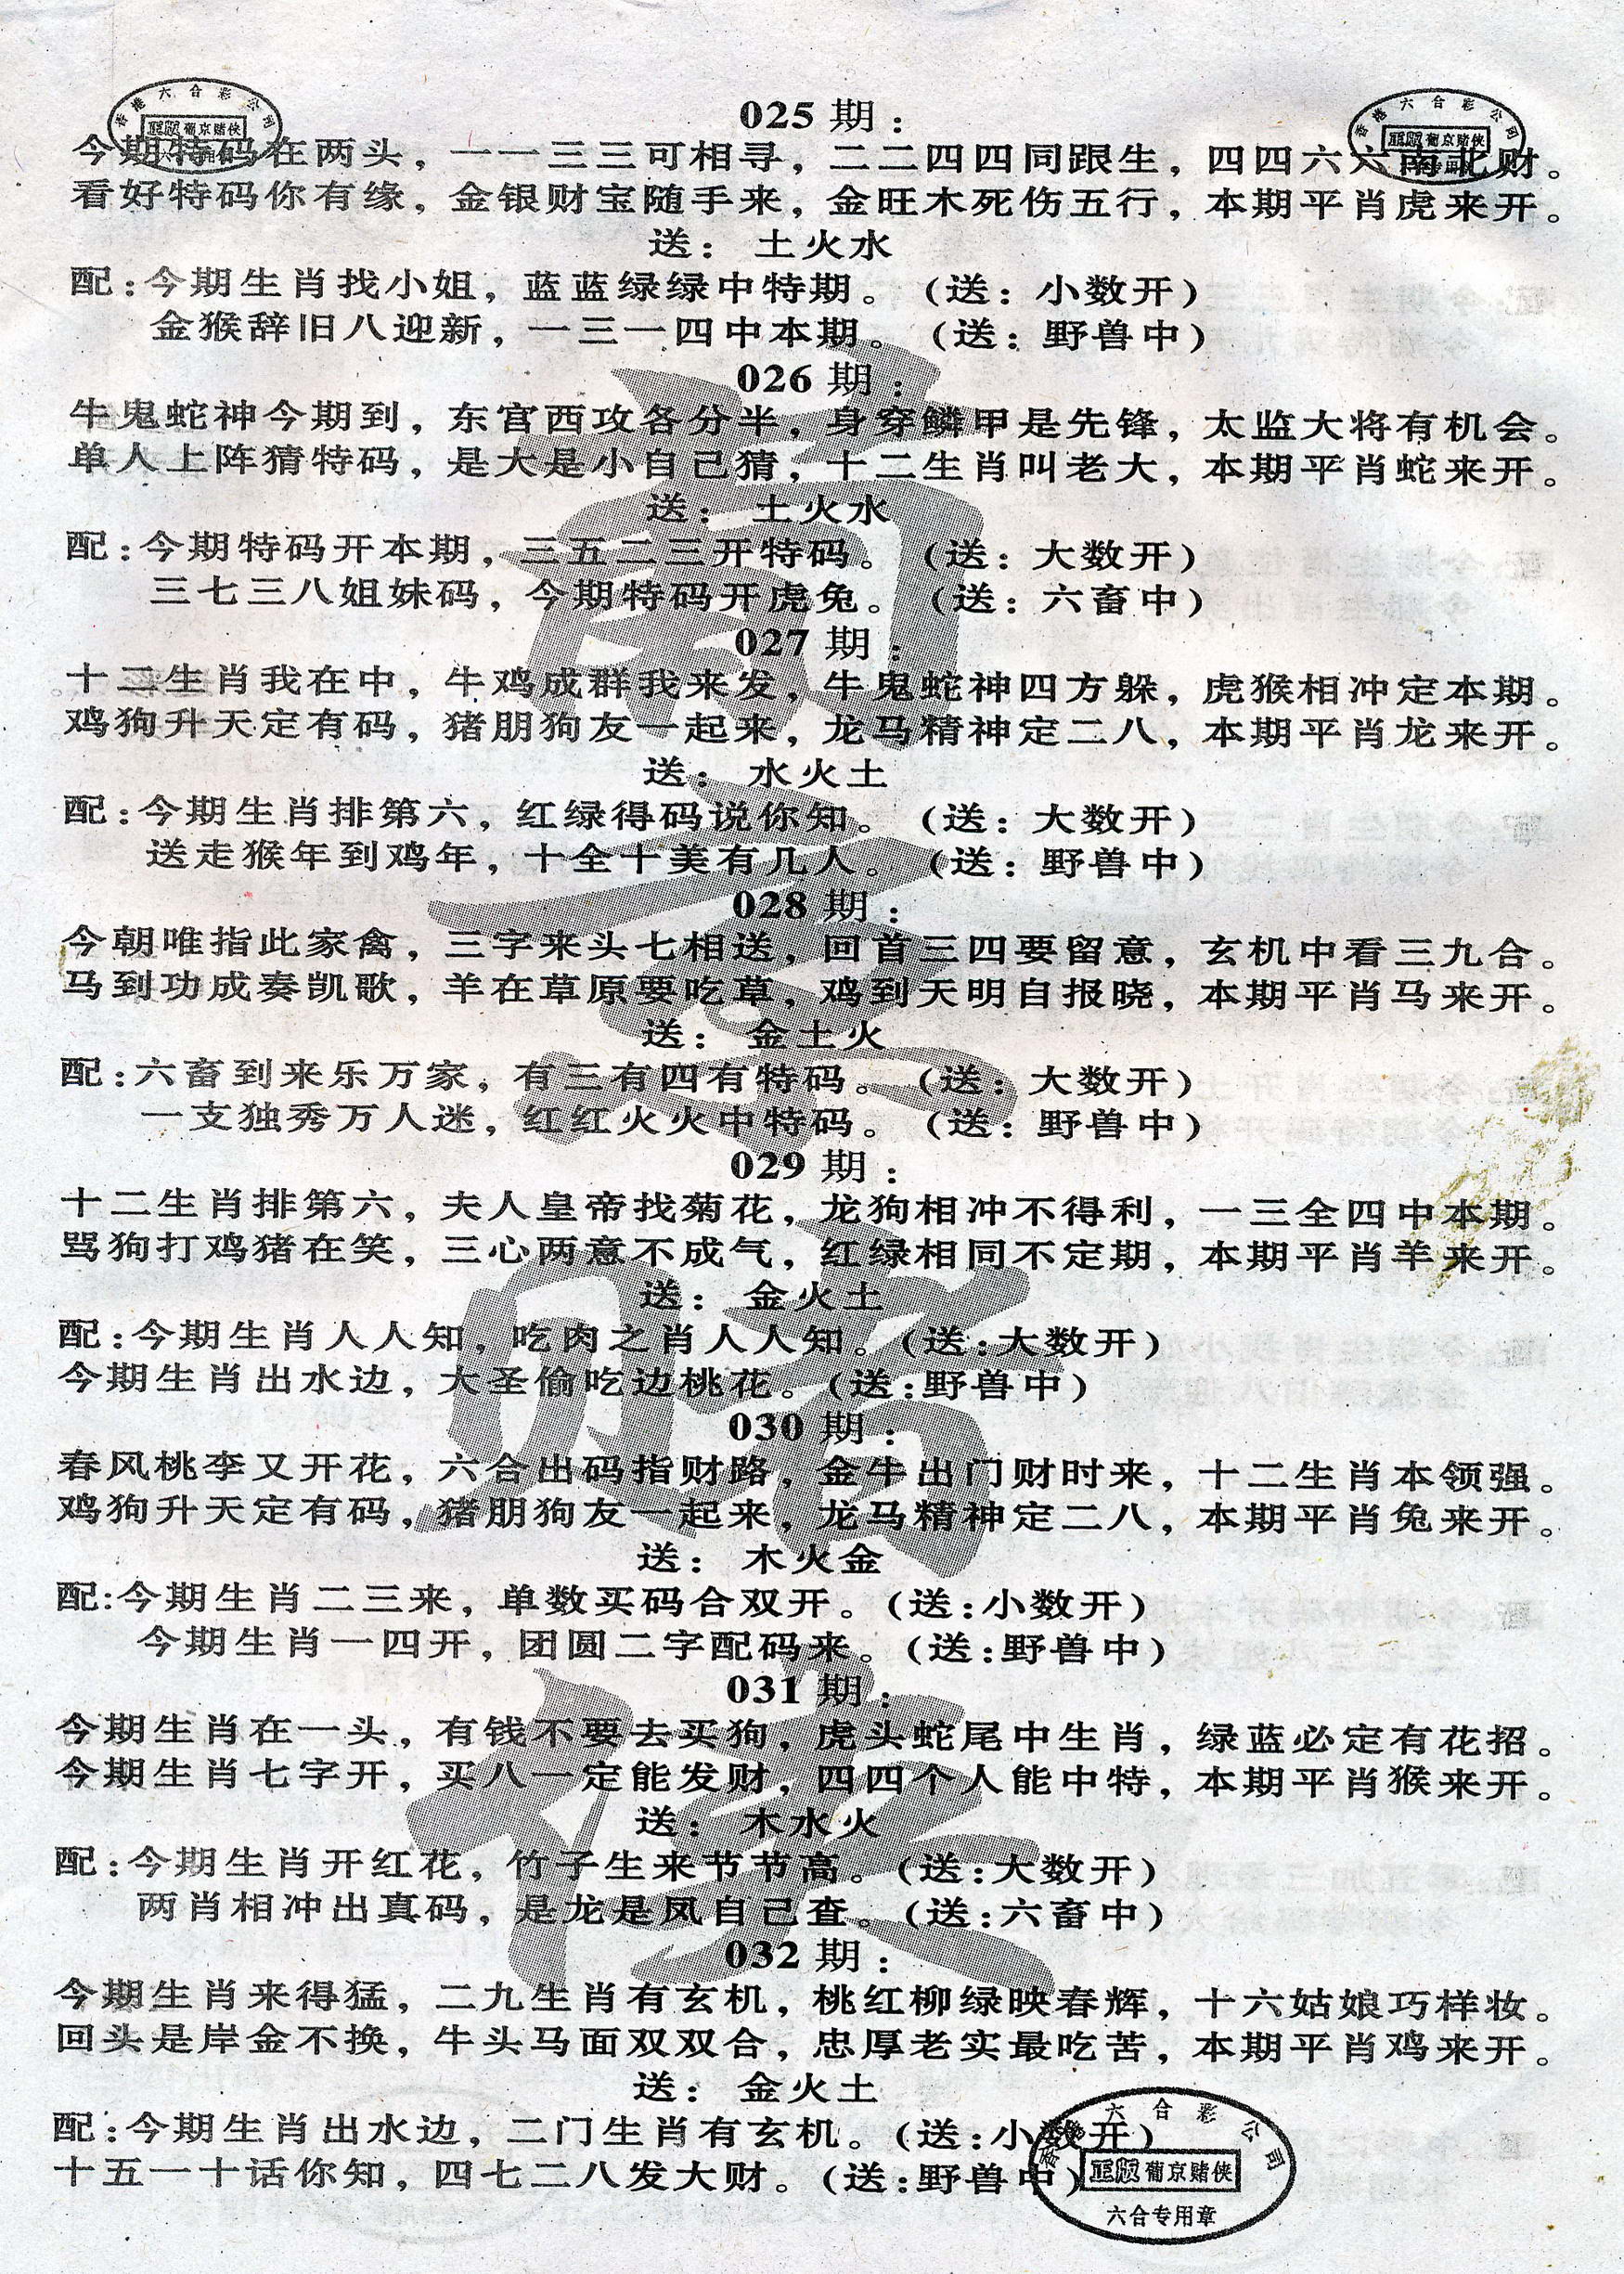 香港六合彩公司
正版 葡京赌侠
香港六合彩公司
正版 葡京赌侠
025期：
今期特码在两头，一一三三可相寻，二二四四同跟生，四四六六南北财。
看好特码你有缘，金银财宝随手来，金旺木死伤五行，本期平肖虎来开。
送：土火水
配：今期生肖找小姐，蓝蓝绿绿中特期。（送：小数开）
金猴辞旧八迎新，一三一四中本期。（送：野兽中）
026期：
牛鬼蛇神今期到，东宫西攻各分半，身穿鳞甲是先锋，太监大将有机会。
单人上阵猜特码，是大是小自己猜，十二生肖叫老大，本期平肖蛇来开。
送：土火水
配：今期特码开本期，三五二三开特码。（送：大数开）
三七三八姐妹码，今期特码开虎兔。（送：六畜中）
027期：
十二生肖我在中，牛鸡成群我来发，牛鬼蛇神四方躲，虎猴相冲定本期。
鸡狗升天定有码，猪朋狗友一起来，龙马精神定二八，本期平肖龙来开。
送：水火土
配：今期生肖排第六，红绿得码说你知。（送：大数开）
送走猴年到鸡年，十全十美有几人。（送：野兽中）
028期：
今朝唯指此家禽，三字来头七相送，回首三四要留意，玄机中看三九合。
马到功成奏凯歌，羊在草原要吃草，鸡到天明自报晓，本期平肖马来开。
送：金土火
配：六畜到来乐万家，有三有四有特码。（送：大数开）
一支独秀万人迷，红红火火中特码。（送：野兽中）
029期：
十二生肖排第六，夫人皇帝找菊花，龙狗相冲不得利，一三全四中本期。
骂狗打鸡猪在笑，三心两意不成气，红绿相同不定期，本期平肖羊来开。
送：金火土
配：今期生肖人人知，吃肉之肖人人知。（送：大数开）
今期生肖出水边，大圣偷吃边桃花。（送：野兽中）
030期：
春风桃李又开花，六合出码指财路，金牛出门财时来，十二生肖本领强。
鸡狗升天定有码，猪朋狗友一起来，龙马精神定二八，本期平肖兔来开。
送：木火金
配：今期生肖二三来，单数买码合双开。（送：小数开）
今期生肖一四开，团圆二字配码来。（送：野兽中）
031期：
今期生肖在一头，有钱不要去买狗，虎头蛇尾中生肖，绿蓝必定有花招。
今期生肖七字开，买八一定能发财，四四个人能中特，本期平肖猴来开。
送：木水火
配：今期生肖开红花，竹子生来节节高。（送：大数开）
两肖相冲出真码，是龙是凤自己查。（送：六畜中）
032期：
今期生肖来得猛，二九生肖有玄机，桃红柳绿映春辉，十六姑娘巧样妆。
回头是岸金不换，牛头马面双双合，忠厚老实最吃苦，本期平肖鸡来开。
送：金火土
配：今期生肖出水边，二门生肖有玄机。（送：小数开）
十五一十话你知，四七二八发大财。（送：野兽中）
香港六合彩公司
正版 葡京赌侠
六合专用章